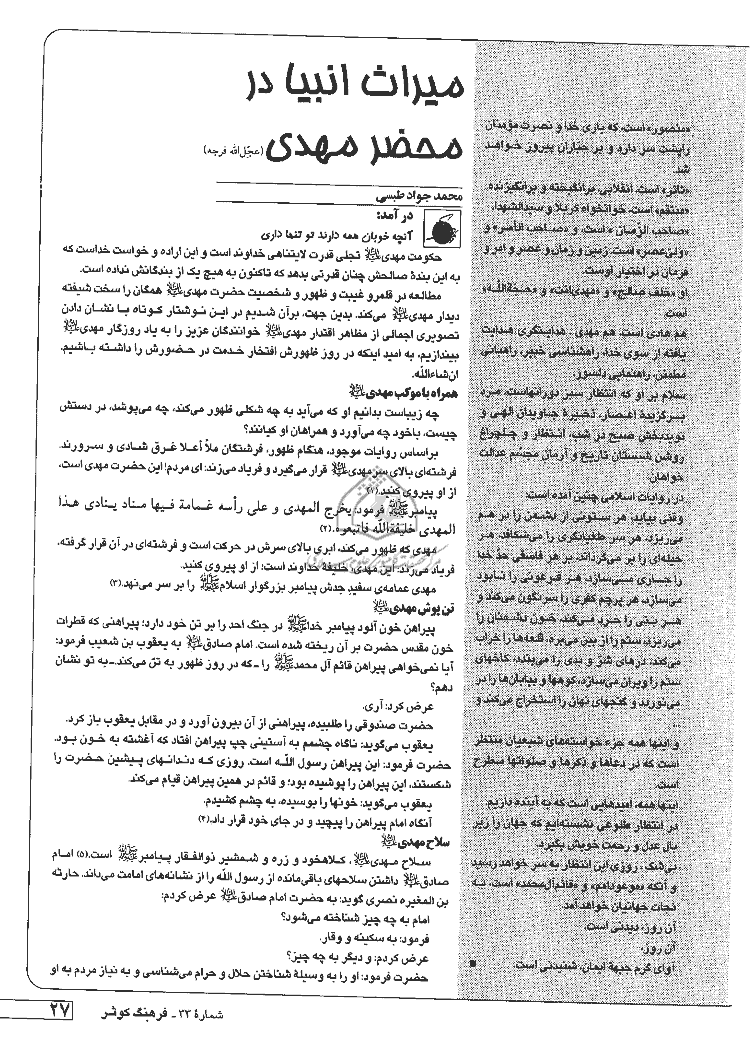 «منصور» است، که یاری خدا و نصرت مؤمنان
رایت سر دارد و بر جباران پیروز خواهد
شد.
«ثائر» است، انقلابی برانگیخته و برانگیزنده.
«منتقم» است، خوانخواه کربلا و سیدالشهدا.
«صاحب الزمان» است و «صاحب الأمر» و
«ولی‌عصر» است. زمین و زمان و عصر و ابر و
فرمان در اختیار اوست.
او «خلف صالح» و «مهدی‌امّت» و «حجةالله»
است.
هم هادی است، هم مهدی. هدایتگری هدایت
یافته از سوی خدا، راهشناسی خبیر، راهبانی
مطمئن، راهنمایی دلسوز.
سلام بر او که انتظار سبز دورانهاست. مرد
برگزیدهٔ اعصار، ذخیرهٔ جاویدان الهی و
نویدبخش صبح در شب انتظار و چلچراغ
روشن شبستان تاریخ و آرمان مجسم عدالت
خواهان.
در روایات اسلامی چنین آمده است:
وقتی بیاید، هر ستونی از دشمن را بر هم
می‌ریزد، هر سر طغیانگری را می‌شکافد، هر
حیله‌ای را بر می‌گرداند، بر هر فاسقی حدّ خدا
را جاری می‌سازد، هر فرعونی را نابود
می‌سازد، هر پرچم کفری را سرنگون می‌کند و
هر بتی را خرد می‌کند، خون دشمنان را
می‌ریزد، ستم را از بین می‌برد، قلعه‌ها را خراب
می‌کند، درهای شرّ و بدی را می‌بندد، کاخهای
ستم را ویران می‌سازد، کوهها و بیابانها را در
می‌نوردد و گنجهای نهان را استخراج می‌کند و
...
و اینها همه جزء خواسته‌های شیعیان منتظر
است که در دعاها و ذکرها و صلواتها مطرح
است.
اینها همه، امیدهایی است که به آینده داریم.
در انتظار طلوعی نشسته‌ایم که جهان را زیر
بال عدل و رحمت خویش بگیرد.
بی‌شک، روزی این انتظار به سر خواهد رسید
و آنکه «موعود امم» و «قائم آل محمد» است، به
نجات جهانیان خواهد آمد.
آن روز، دیدنی است.
آن روز،
آوای گرم جبههٔ ایمان، شنیدنی است.
میراث انبیا در
محضر مهدی (عجّل‌الله فرجه)
محمد جواد طبسی
در آمد:
آنچه خوبان همه دارند تو تنها داری
حکومت مهدی تجلی قدرت لایتناهی خداوند است و این اراده و خواست خداست که
به این بندهٔ صالحش چنان قدرتی بدهد که تاکنون به هیچ یک از بندگانش نداده است.
مطالعه در قلمرو غیبت و ظهور و شخصیت حضرت مهدی همگان را سخت شیفته
دیدار مهدی می‌کند. بدین جهت، برآن شدیم در این نوشتار کوتاه با نشان دادن
تصویری اجمالی از مظاهر اقتدار مهدی خوانندگان عزیز را به یاد روزگار مهدی
بیندازیم، به امید اینکه در روز ظهورش افتخار خدمت در حضورش را داشته باشیم.
ان‌شاءالله.
همراه با موکب مهدی
چه زیباست بدانیم او که می‌آید به چه شکلی ظهور می‌کند، چه می‌پوشد، در دستش
چیست، باخود چه می‌آورد و همراهان او کیانند؟
براساس روایات موجود، هنگام ظهور، فرشتگان ملأ أعلا غرق شادی و سرورند.
فرشته‌ای بالای سر مهدی قرار می‌گیرد و فریاد می‌زند: ای مردم! این حضرت مهدی است،
از او پیروی کنید.(۱)
پیامبر فرمود: یخرج المهدی و علی رأسه غمامة فیها مناد ینادی هذا
المهدی خلیفةالله فاتبعوه.(۲)
مهدی که ظهور می‌کند، ابری بالای سرش در حرکت است و فرشته‌ای در آن قرار گرفته،
فریاد می‌زند: این مهدی، خلیفهٔ خداوند است؛ از او پیروی کنید.
مهدی عمامه‌ی سفید جدش پیامبر بزرگوار اسلام را بر سر می‌نهد.(۳)
تن پوش مهدی
پیراهن خون آلود پیامبر خدا در جنگ احد را بر تن خود دارد؛ پیراهنی که قطرات
خون مقدس حضرت بر آن ریخته شده است. امام صادق به یعقوب بن شعیب فرمود:
آیا نمی‌خواهی پیراهن قائم آل محمد را ـ که در روز ظهور به تن می‌کند ـ به تو نشان
دهم؟
عرض کرد: آری.
حضرت صندوقی را طلبیده، پیراهنی از آن بیرون آورد و در مقابل یعقوب باز کرد.
یعقوب می‌گوید: ناگاه چشمم به آستینی چپ پیراهن افتاد که آغشته به خون بود.
حضرت فرمود: این پیراهن رسول الله است. روزی که دندانهای پیشین حضرت را
شکستند، این پیراهن را پوشیده بود؛ و قائم در همین پیراهن قیام می‌کند.
یعقوب می‌گوید: خونها را بوسیده، به چشم کشیدم.
آنگاه امام پیراهن را پیچید و در جای خود قرار داد.(۴)
سلاح مهدی
سلاح مهدی، کلاهخود و زره و شمشیر ذوالفقار پیامبر است.(۵) امام
صادق داشتن سلاحهای باقی‌مانده از رسول الله را از نشانه‌های امامت می‌داند. حارثه
بن المغیره نصری گوید: به حضرت امام صادق عرض کردم:
امام به چه چیز شناخته می‌شود؟
فرمود: به سکینه و وقار.
عرض کردم: و دیگر به چه چیز؟
حضرت فرمود: او را به وسیلهٔ شناختن حلال و حرام می‌شناسی و به نیاز مردم به او
شمارهٔ ۳۳ ـ فرهنگ کوثر
۲۷